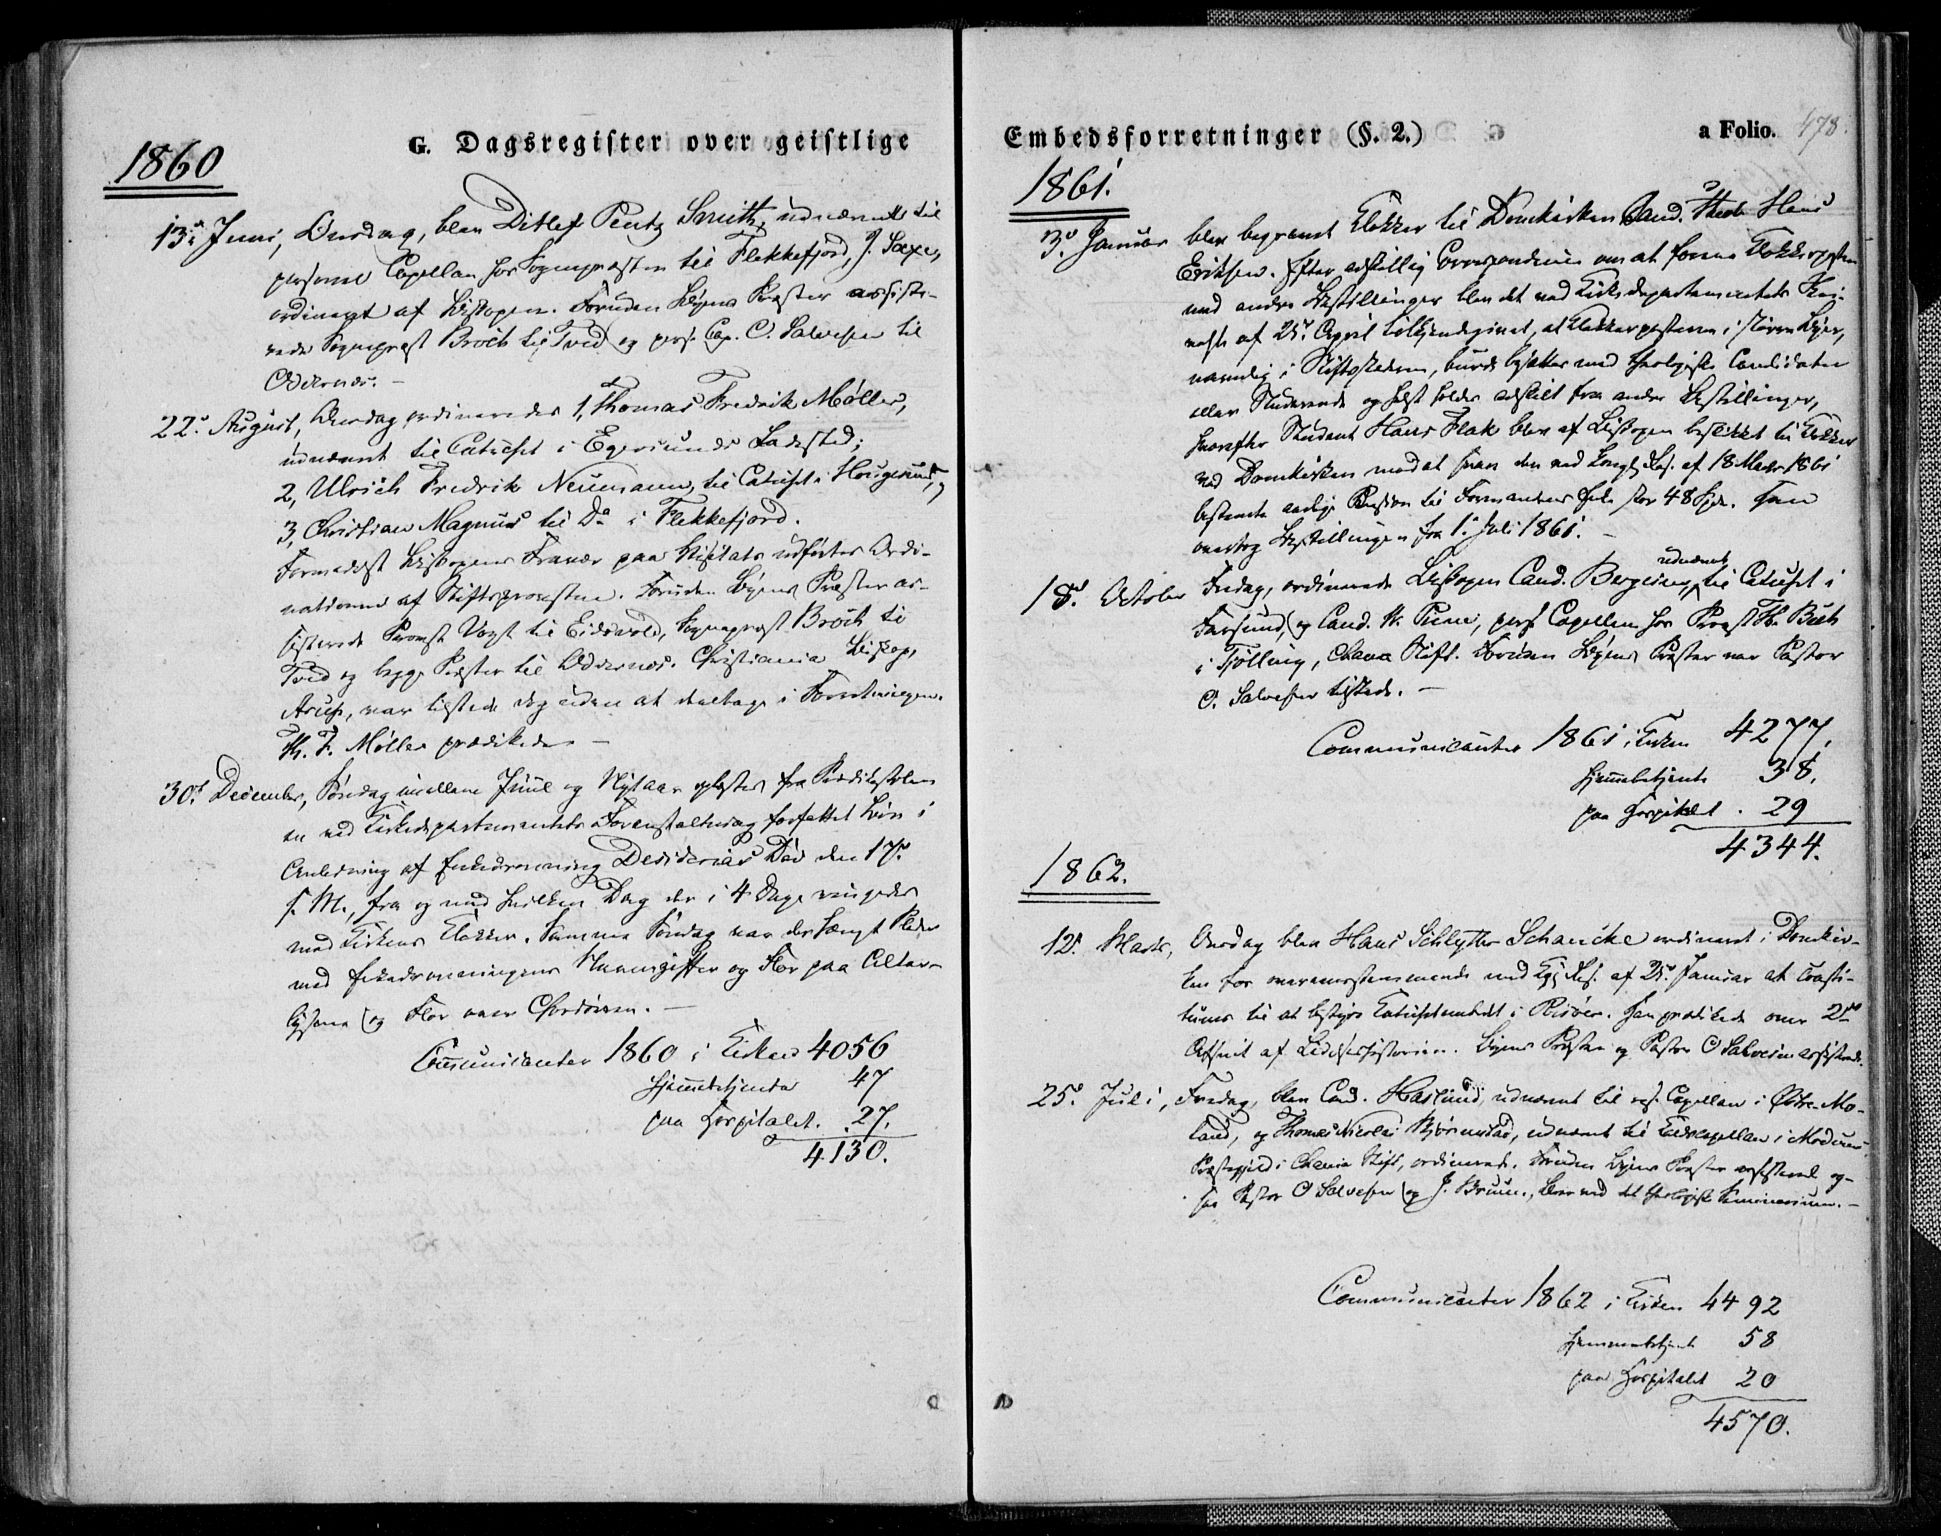 G. Dagsregister over geistlige
1860
13de Juni, Onsdag, blev Ditlef Pentz Smith, udnævnt til
personel Capellan hos Sognepræsten til Flekkefjord, J. Saxe,
ordineret af Biskopen. Foruden Byens Præster assiste-
rede Sognepræst Broch til Tved og pers. Cap. O. Salvesen til
Oddernæs. –
22d August, Onsdag ordineredes 1, Thomas Fredrik Møller,
udnævnt til Catechet i Egersunds Ladested;
2, Ulrich Fredrik Neumann, til Catechet i Hougesund, og
3, Christian Magnus til Do i Flekkefjord.
Formedelst Biskopens Fravær paa Visitats udførtes Ordi-
nationen af Stiftsprovsten. Foruden Byens Præster as-
sisterede Provst Vogt til Eidsvold, Sognepræst Broch til
Tved og begge Præster til Oddernæs. Christiania Biskop,
Arup, var tilstede dog uden at deeltage i Forretningen.
Th. F. Møller prædikede –
30d December, Søndag imellem Juul og Nytaar oplæstes fra Prædikestolen
en ved Kirkedepartementets Foranstaltning forfattet Bøn i
Anledning af Enkedronning Desiderias Død den 17de
s. M., fra og med hvilken Dag der i 4 Dage ringedes
med Kirkens Klokker. Samme Søndag var der hængt Plader
med Enkedronningens Navneziffer og Flor paa Altar-
lysene og Flor over Chordøren. –
Communicanter 1860 i Kirken 4056
Hjemmebetjente 47
paa Hospitalet. 27.
4130.
Embedsforretninger (§. 2.)
a Folio. 478.
1861.
3d Januar blev begravet Klokker til Domkirken Cand. Theol. Hans
Eriksen. Efter adskillig Correspondence om at forene Klokkerposten
med andre Bestillinger blev det ved Kirkedepartementets Skri-
velse af 25de April tilkjendegivet, at Klokkerposterne i større Byer,
navnlig i Stiftsstæderne, burde besættes med theologiske Candidater
eller Studerende og helst holdes adskilt fra andre Bestillinger,
hvorefter Student Hans Flak blev af Biskopen beskikket til Klokker
ved Domkirken mod at svare den ved Kongl. Res. af 18 Marts 1861
bestemte aarlige Pension til Formandens Enke stor 48 Spd. Han
overtog Bestillingen fra 1. Juli 1861. –
18d October Fredag, ordinerede Biskopen Cand. Bergersen, udnævnt til Catechet i
Farsund, og Cand. N. Pune, pers. Capellan hos Provst Th. Buch
i Tjølling, Chania Stift. Foruden Byens Præster var Pastor
O. Salvesen tilstede. –
Communicanter 1861 i Kirken 4277,
Hjemmebetjente 38,
paa Hospitalet . 29
4344.
1862.
12d Marts, Onsdag blev Hans Schlytter Schancke ordineret i Domkir-
ken for overensstemmende med Kgl. Res. af 25de Januar at consti-
tueres til at bestyre Catechetembedet i Risøer. Han prædikede over 2det
Afsnit af Lidelseshistorien. Byens Præster og Pastor O Salvesen assisterede.
25d Juli, Fredag, blev Cand. Haslund, udnævnt til res. Capellan i Østre-Mo-
land, og Thomas Nicolai Bjørnstad, udnævnt til Capellan i Modum
Præstegjeld i Chania Stift, ordinerede. Foruden Byens Præster assisterede og-
saa Pastor O Salvesen og J. Bruun, Lærer ved det theologiske Seminarium. –
Communicanter 1862 i Kirken 4492
Hjemmebetjente 58
paa Hospitalet 20
4570.